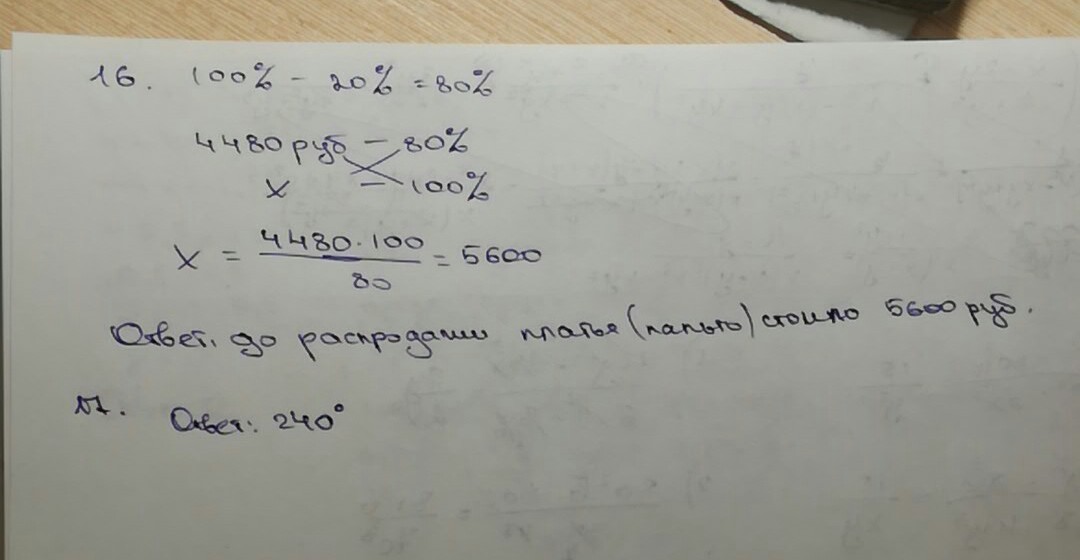 16. 100% - 20% = 80%
4480 руб - 80%
x - 100%
x = 4480·100 / 80 = 5600
Ответ. до распродажи платья (пальто) стоило 5600 руб.
17. Ответ: 240°